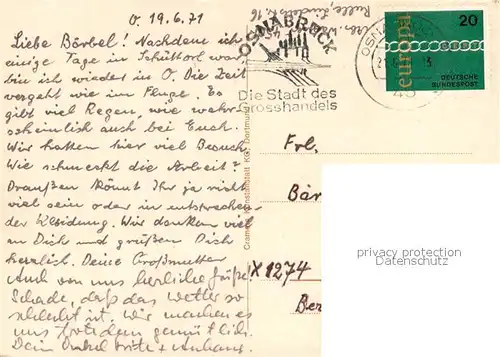 O. 19.6.71
Liebe Bärbel! Nachdem ich
einige Tage in Schüttorf war,
bin ich wieder in O. Die Zeit
vergeht wie im Fluge. Es
gibt viel Regen, wie wahr-
scheinlich auch bei Euch.
Wir hatten hier viel Besuch.
Wie schmeckt die Arbeit?
Draußen könnt Ihr ja nicht
viel sein oder in entsprechen-
der Kleidung. Wir denken viel
an Dich und grüßen Dich
herzlich. Deine Großmutter
Auch von uns herzliche Grüße!
Schade, daß das Wetter so
schlecht ist. Wir machen es
uns trotzdem gemütlich.
Dein Onkel +
Cramers Kunstanstalt KG, Dortmund
Rulle,
OSNABRÜCK
Die Stadt des
Grosshandels
OSNABRÜCK
45
europa
20
DEUTSCHE
BUNDESPOST
Frl.
Bär
X 1274
Ber
privacy protection
Datenschutz